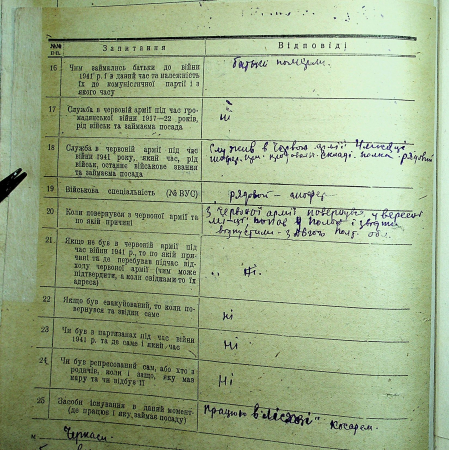 №№ п.п.
Запитання
Відповіді
16
Чим займались батьки до війни
1941 р. і в даний час та належність
їх до комуністичної партії і з
якого часу
батьки померли.
17
Служба в червоній армії під час гро-
мадянської війни 1917—22 років,
рід військ та займаєма посада
ні
18
Служба в червоній армії під час
війни 1941 року, який час, рід
військ, останнє військове звання
та займаєма посада
Служив в Червон. армії
рядовий
19
Військова спеціальність (№ ВУС)
рядовой — шофер
20
Коли повернувся з червоної армії та
по якій причині
З Червоної армії повернувся у вересні
попав в полон і звідти
відпустили
21
Якщо не був в червоній армії під
час війни 1941 р., то по якій при-
чині та де перебував підчас від-
ходу червоної армії (чим може
підтвердити, а коли свідками-то їх
адреса)
22
Якщо був евакуйований, то коли по-
вернувся та звідки саме
ні
23
Чи був в партизанах під час війни
1941 р. та де саме і який час
Ні
24
Чи був репресований сам, або хто з
родичів, коли і защо, яку мав
кару та чи відбув її
Ні
25
Засоби існування в даний момент
(де працює і яку займає посаду)
працюю в Косарем.
м
Черкаси.